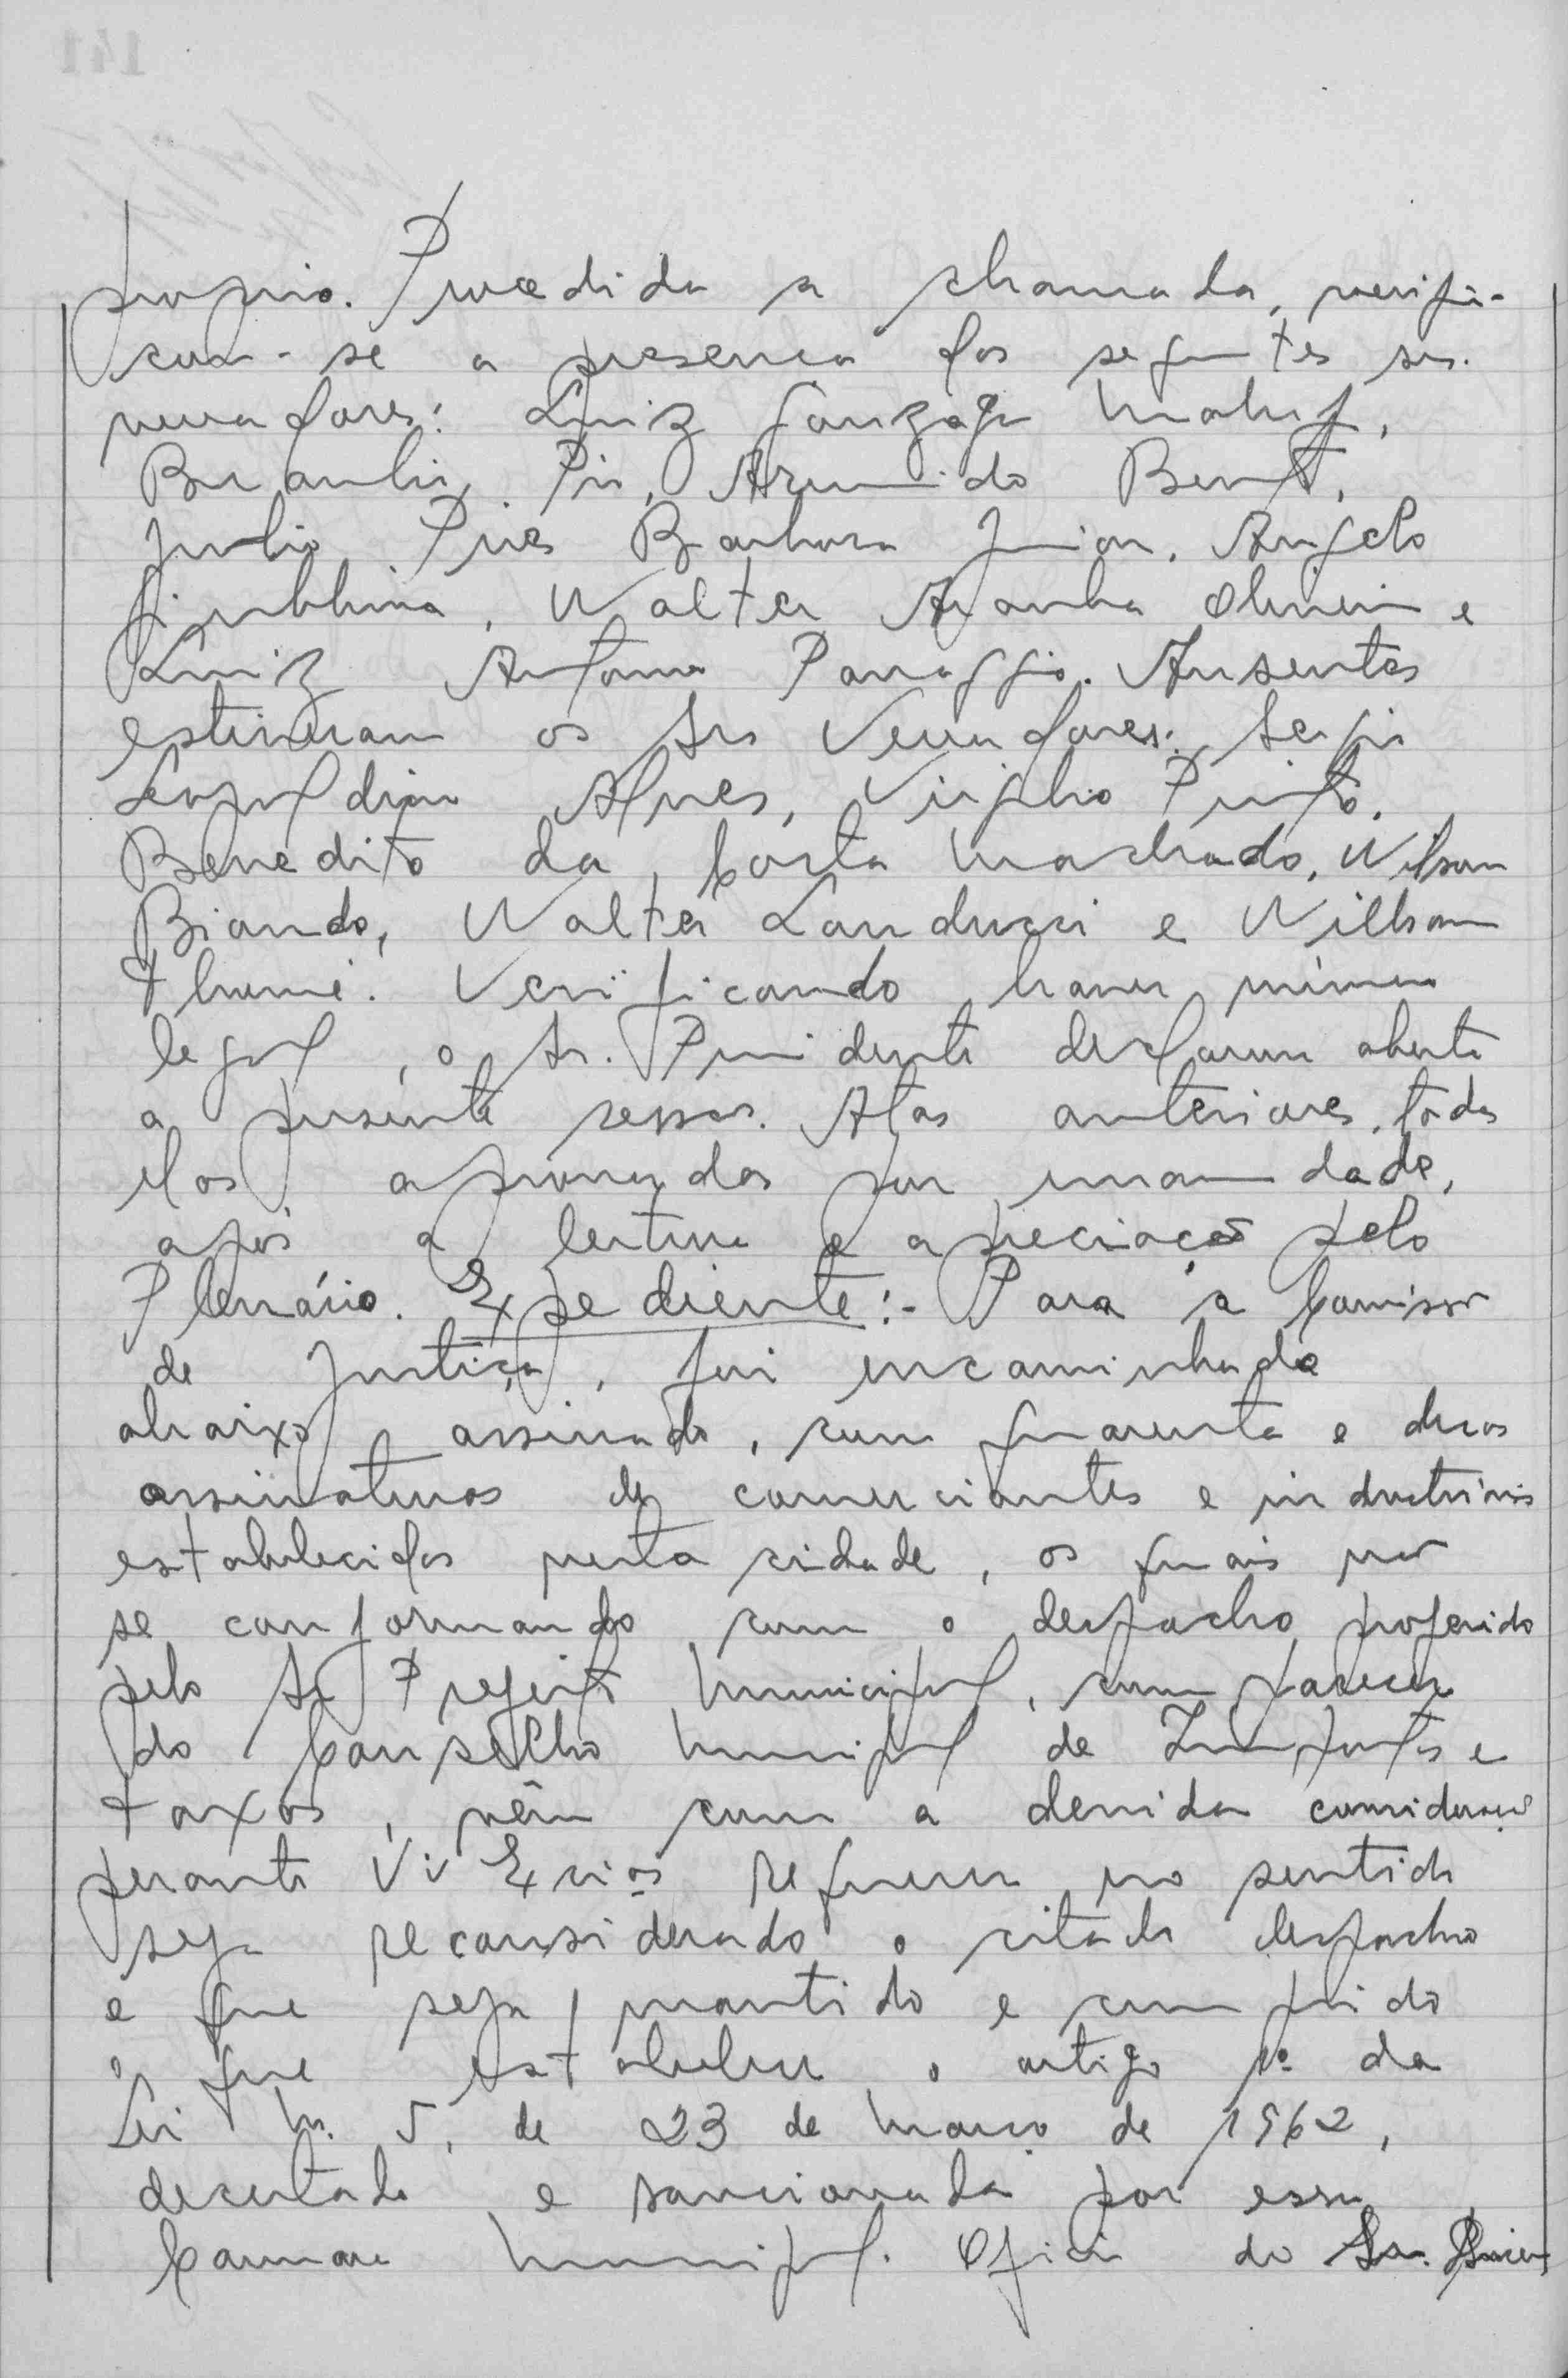 proprio. Procedida a chamada, verifi-
cou-se a presença dos seguintes srs.
vereadores: Luiz Gonzaga Maluf,
Braulio Pio, Armindo
Julio Pires Barbosa Junior, Angelo
Walter Aranha Oliveira e
Luiz Antonio Panaggio. Ausentes
estiveram os Srs Vereadores: Sergio
Leopoldino Alves, Virgilio Pinto,
Benedito da Costa Machado, Wilson
Biondo, Walter Landucci e Willson
Thomé. Verificando haver número
legal, o Sr. Presidente declarou aberta
a presente sessão. Atas anteriores, todas
elas aprovadas por unanimidade,
após a leitura e apreciação pelo
Plenário. Expediente:- Para a Comissão
de Justiça, foi encaminhado
abaixo assinado, com quarenta e duas
assinaturas de comerciantes e industriais
estabelecidos nesta cidade, os quais não
se conformando com o despacho proferido
pelo Sr Prefeito Municipal, com parecer
do Conselho Municipal de Impostos e
taxas, vêm com a devida consideração
perante V. V. Excias requerer no sentido
seja reconsiderado o citado despacho
e que seja mantido e cumprido
o que estabelece o artigo 1º da
Lei n. 5, de 23 de março de 1962,
decretada e sancionada por essa
Camara Municipal. Oficio do Sr.